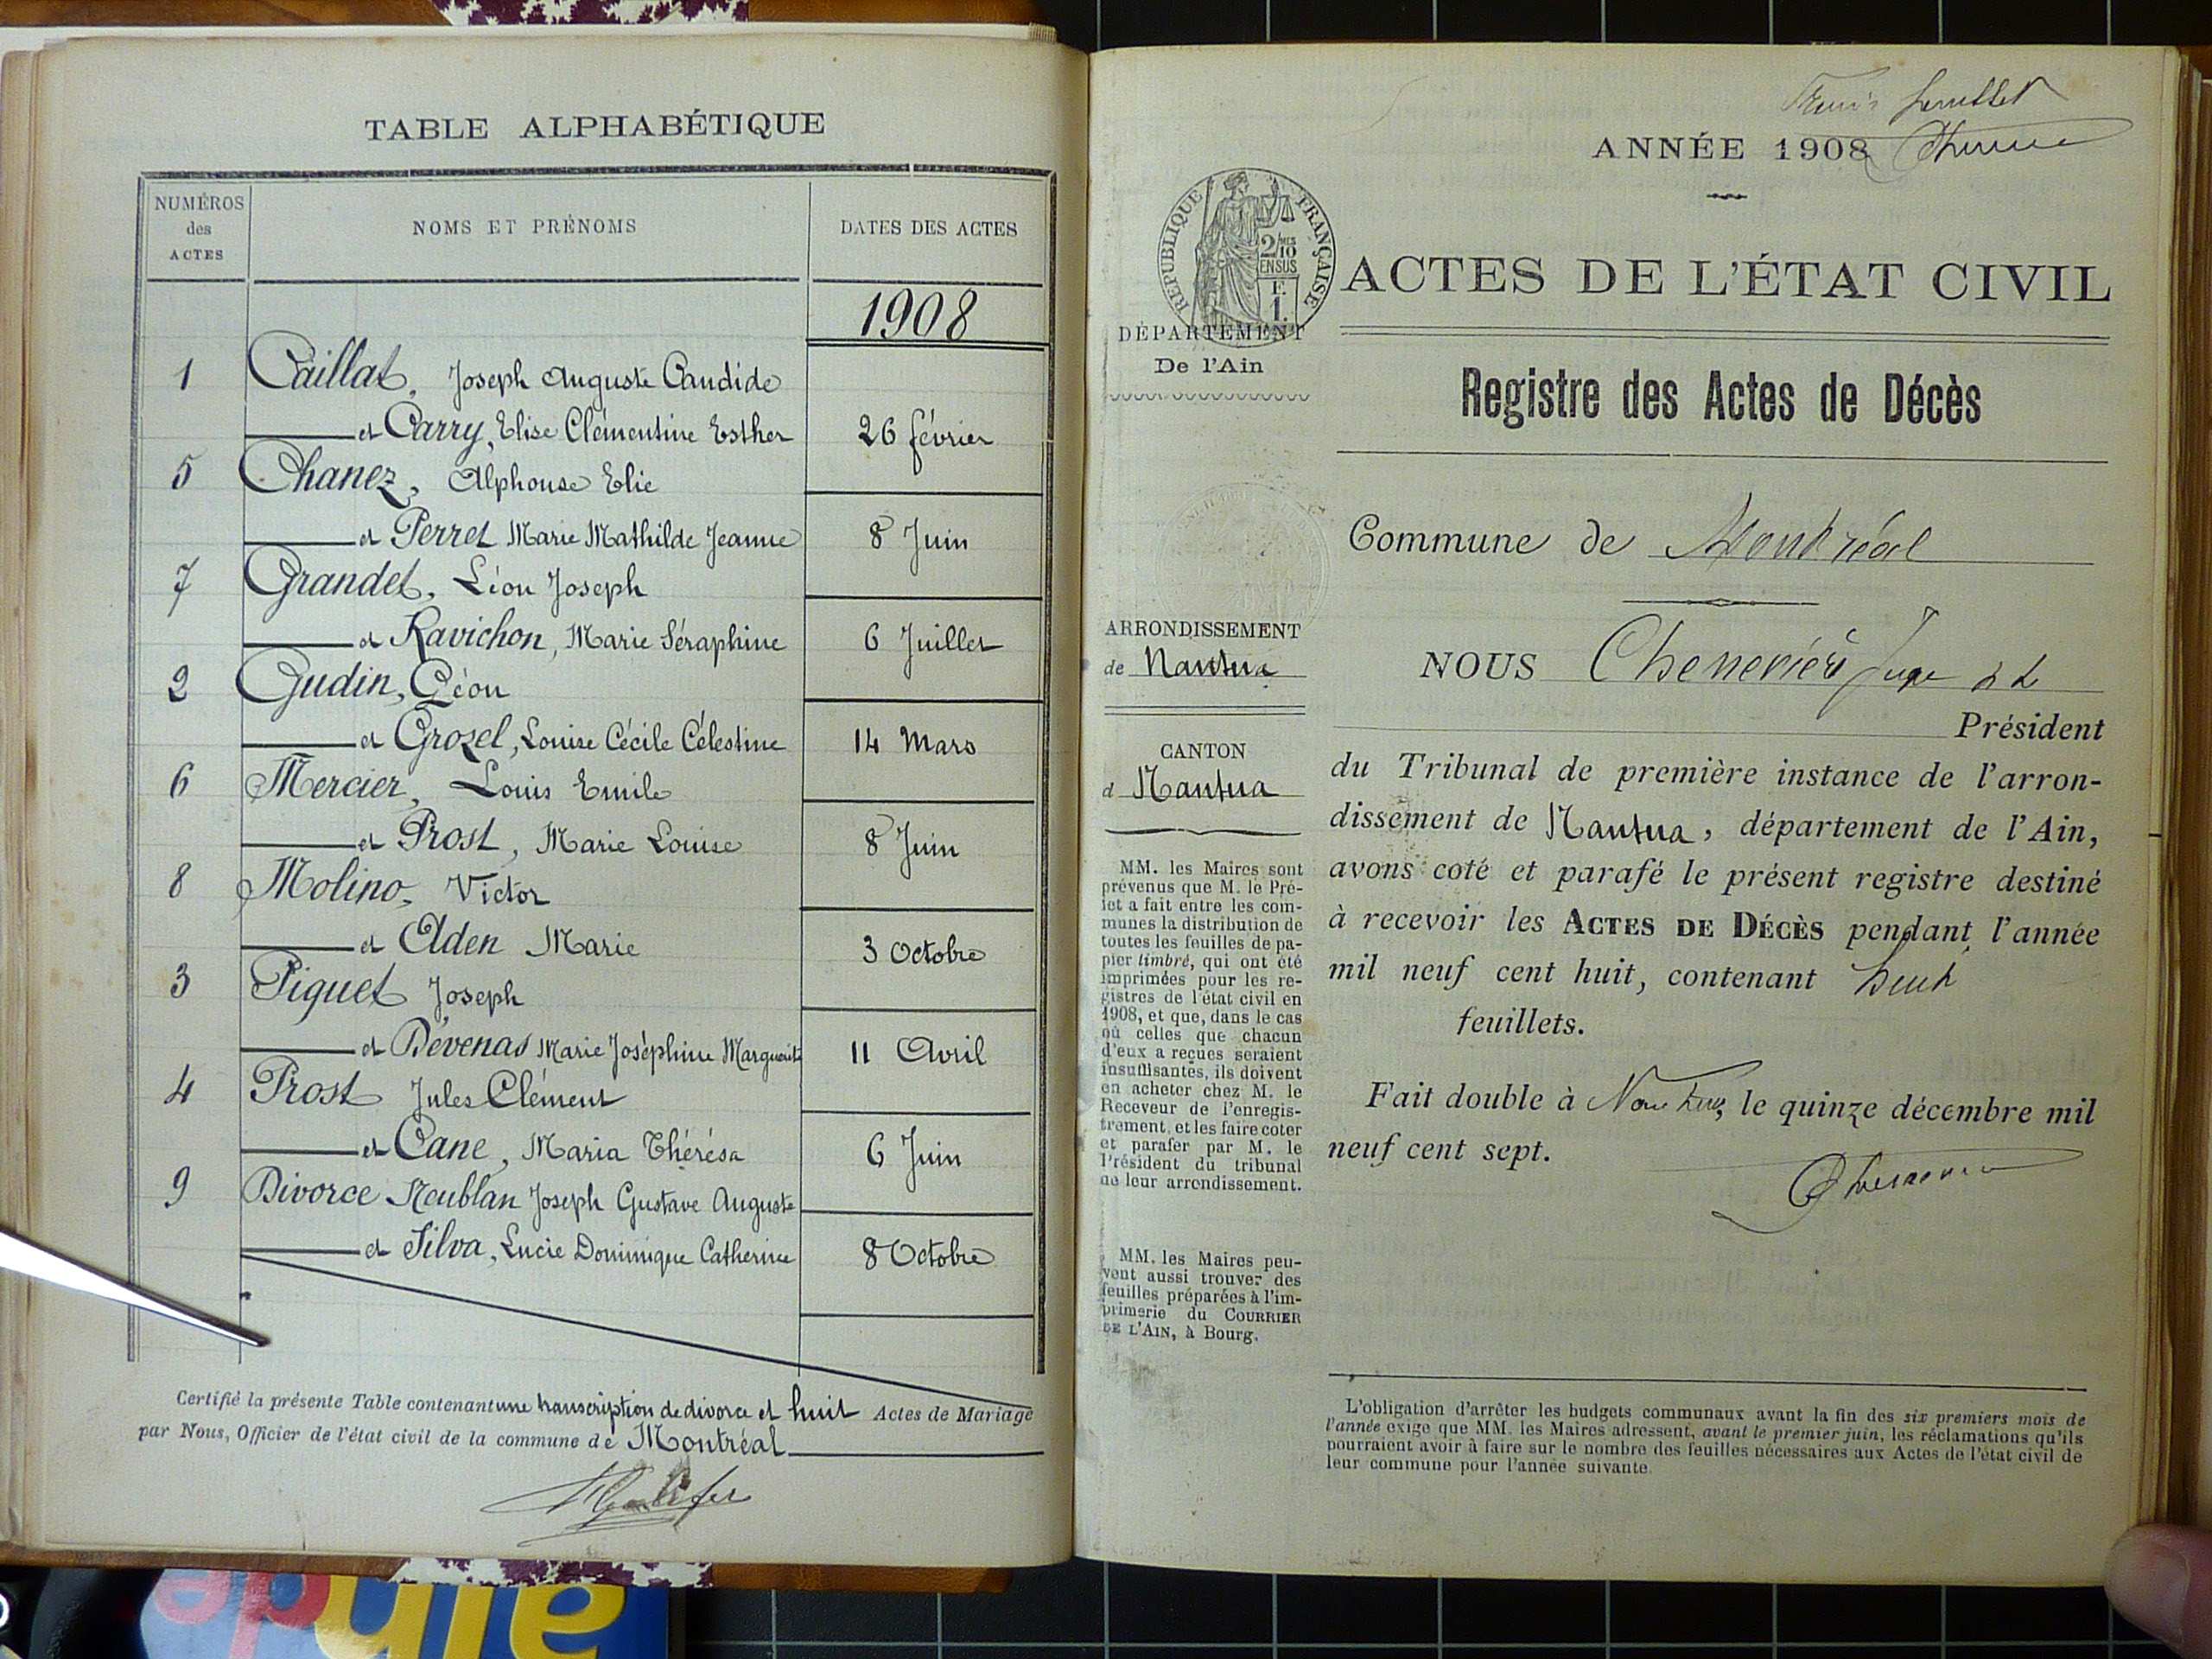 TABLE ALPHABÉTIQUE
NUMÉROS des ACTES
NOMS ET PRÉNOMS
DATES DES ACTES
1908
1 Caillat, Joseph Auguste Candide
et Carry, Elise Clémentine Esther 26 février
5 Chanez, Alphonse Elie
et Perret Marie Mathilde Jeanne 8 Juin
7 Grandet, Léon Joseph
et Ravichon, Marie Séraphine 6 Juillet
2 Gudin, Léon
et Grozel, Louise Cécile Célestine 14 Mars
6 Mercier, Louis Emile
et Prost, Marie Louise 8 Juin
8 Molino, Victor
et Alden Marie 3 Octobre
3 Piquet Joseph
et Dévenas Marie Joséphine Marguerite 11 Avril
4 Prost Jules Clément
et Cane, Maria Thérésa 6 Juin
9 Divorce Neublan Joseph Gustave Auguste
et Silva, Lucie Dominique Catherine 8 Octobre
Certifié la présente Table contenant une transcription de divorce et huit Actes de Mariage
par Nous, Officier de l'état civil de la commune de Montréal
ANNÉE 1908
RÉPUBLIQUE FRANÇAISE
2/10
EN SUS
F.
1.
ACTES DE L'ÉTAT CIVIL
DÉPARTEMENT
De l'Ain
Registre des Actes de Décès
Commune de Montréal
ARRONDISSEMENT
de Nantua
CANTON
d Nantua
MM. les Maires sont
prévenus que M. le Pré-
fet a fait entre les com-
munes la distribution de
toutes les feuilles de pa-
pier timbré, qui ont été
imprimées pour les re-
gistres de l'état civil en
1908, et que, dans le cas
où celles que chacun
d'eux a reçues seraient
insuffisantes, ils doivent
en acheter chez M. le
Receveur de l'enregis-
trement, et les faire coter
et parafer par M. le
Président du tribunal
de leur arrondissement.
MM. les Maires peu-
vent aussi trouver des
feuilles préparées à l'im-
primerie du COURRIER
DE L'AIN, à Bourg.
NOUS Chenevier Juge
Président
du Tribunal de première instance de l'arron-
dissement de Nantua, département de l'Ain,
avons coté et parafé le présent registre destiné
à recevoir les ACTES DE DÉCÈS pendant l'année
mil neuf cent huit, contenant huit
feuillets.
Fait double à Nantua, le quinze décembre mil
neuf cent sept.
L'obligation d'arrêter les budgets communaux avant la fin des six premiers mois de
l'année exige que MM. les Maires adressent, avant le premier juin, les réclamations qu'ils
pourraient avoir à faire sur le nombre des feuilles nécessaires aux Actes de l'état civil de
leur commune pour l'année suivante.